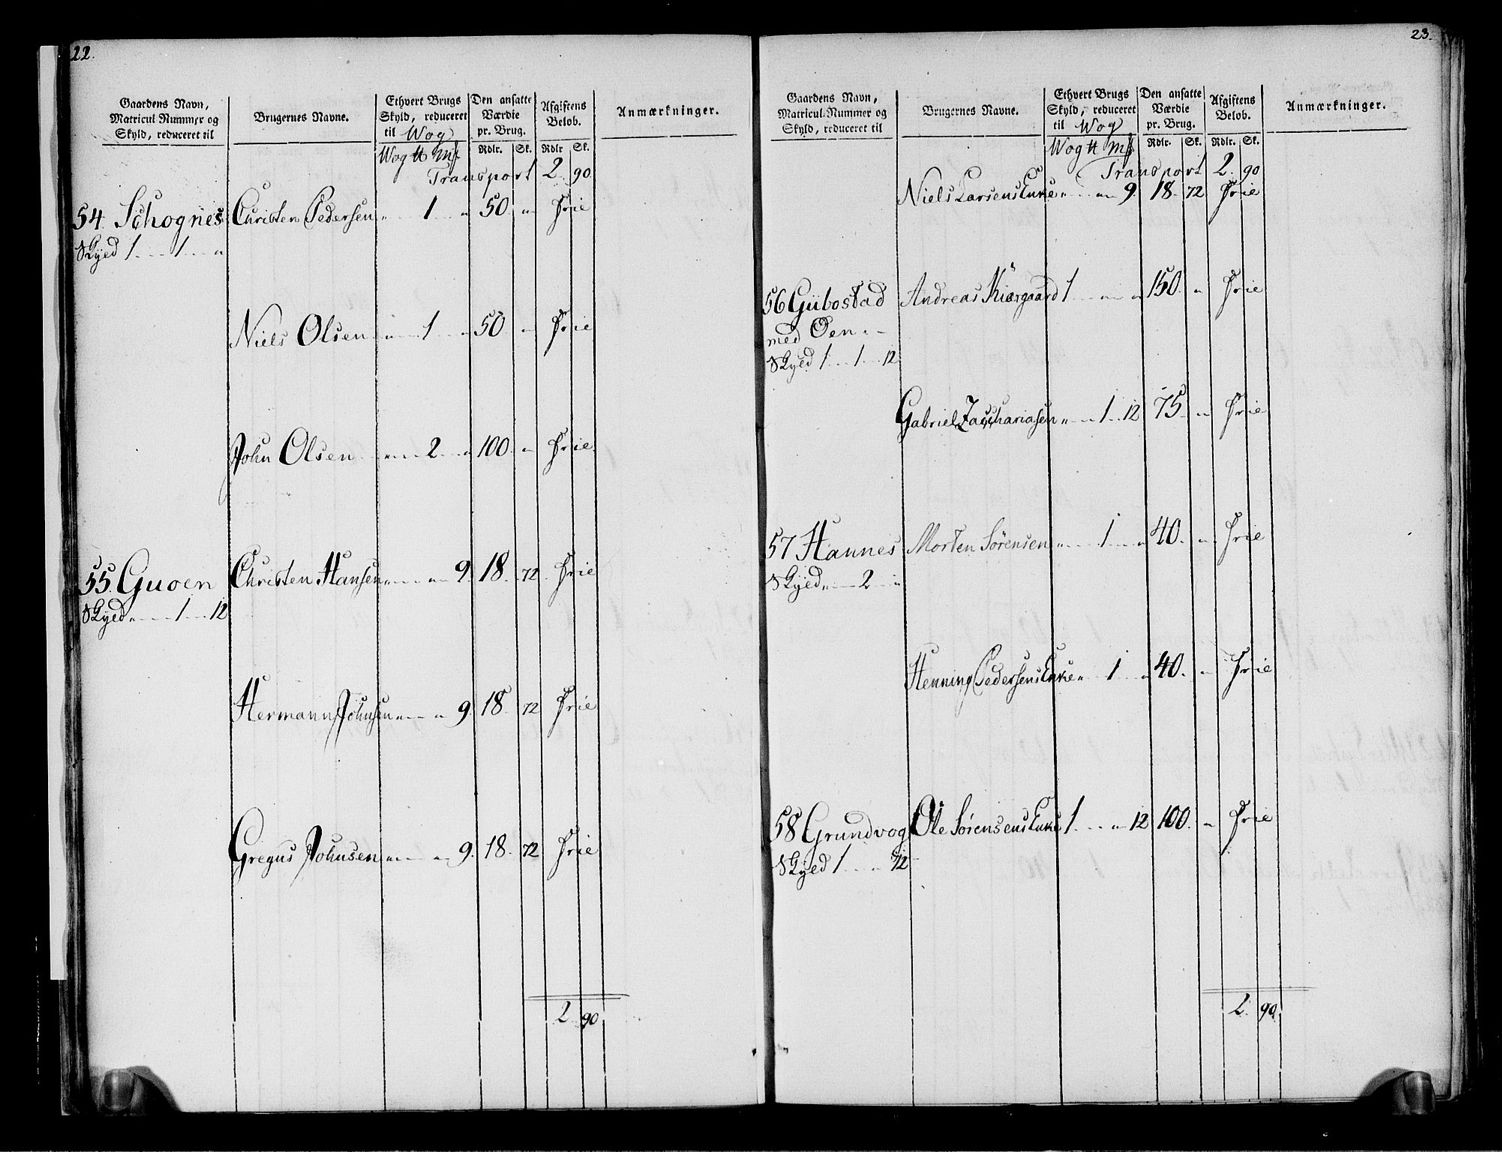 22.
Gaardens Navn, Matricul Nummer og Skyld, reduceret til
Brugernes Navne.
Ethvert Brugs Skyld, reduceret til Wog
Den ansatte Værdie pr. Brug.
Afgiftens Beløb.
Anmærkninger.
Wog ℔ Mk Rdlr. Sk. Rdlr. Sk.
Transport 2. 90
54 Schognes Christen Pedersen " 1 " 50 " Frie
Skyld 1 1 "
Niels Olsen " 1 " 50 " Frie
John Olsen " 2 " 100 " Frie
55 Guoen Christen Hansen " " 9 18 72 Frie
Skyld " 1 12
Hermann Johnsen " " 9 18 72 Frie
Gregus Johnsen " " 9 18 72 Frie
2 90
23.
Gaardens Navn, Matricul-Nummer og Skyld, reduceret til
Brugernes Navne.
Ethvert Brugs Skyld, reduceret til Wog
Den ansatte Værdie pr. Brug.
Afgiftens Beløb.
Anmærkninger.
Wog ℔ Mk Rdlr. Sk. Rdlr. Sk.
Transport 2. 90
Niels Larsens Enke " " 9 18 72 Frie
56 Gibostad Andreas Kiergaard 1 " " 150 " Frie
med Oen
Skyld 1 1 12
Gabriel Zachariasen " 1 12 75 " Frie
57 Hannes Morten Sörensen " 1 " 40 " Frie
Skyld " 2 "
Henning Pedersens Enke " 1 " 40 " Frie
58 Grundvog Ole Sörensens Enke 1 " 12 100 " Frie
Skyld 1 " 12
2 90